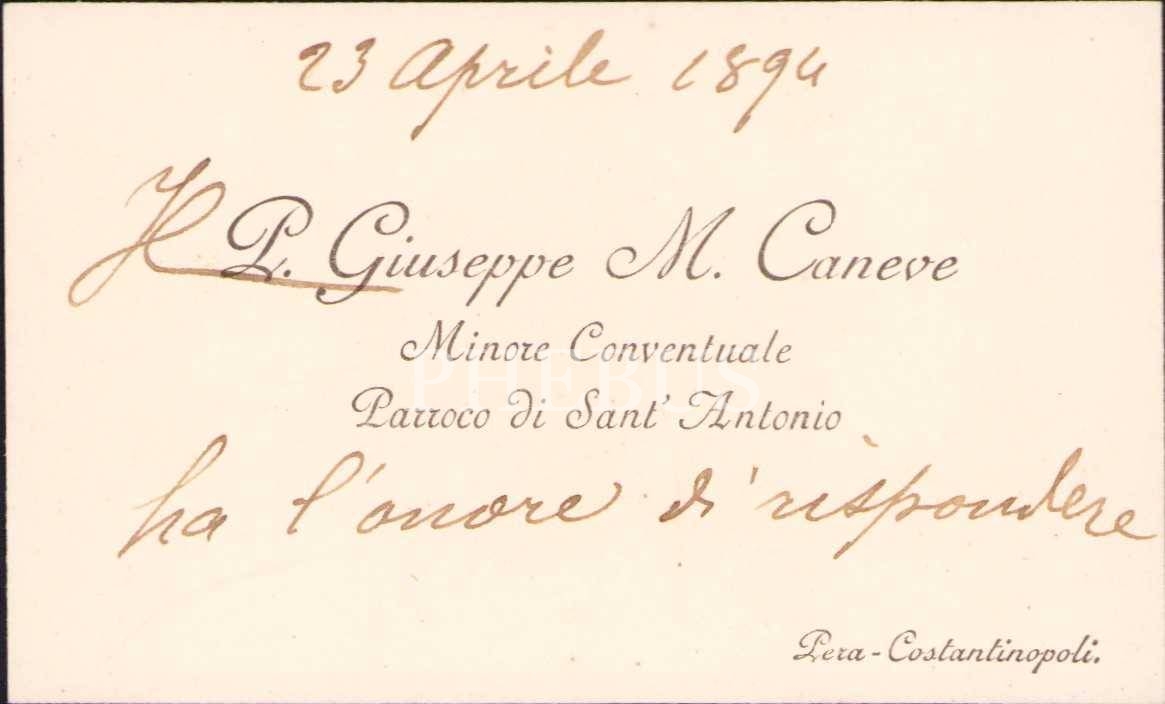 23 Aprile 1894
Il P. Giuseppe M. Caneve
Minore Conventuale
PHEBUS
Parroco di Sant' Antonio
ha l'onore di rispondere
Pera-Costantinopoli.